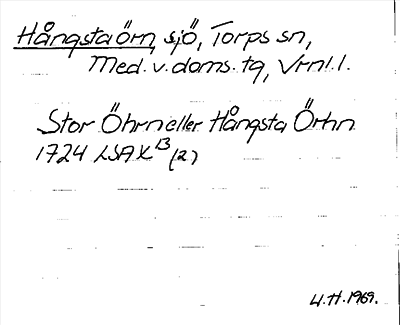 Hångstaörn, sjö, Torps sn,
Med. v. doms. tg, Vrnl. l.
Stor Öhrn eller Hångsta Örhn
1724 LSA X 13 (2)
U.H. 1969.